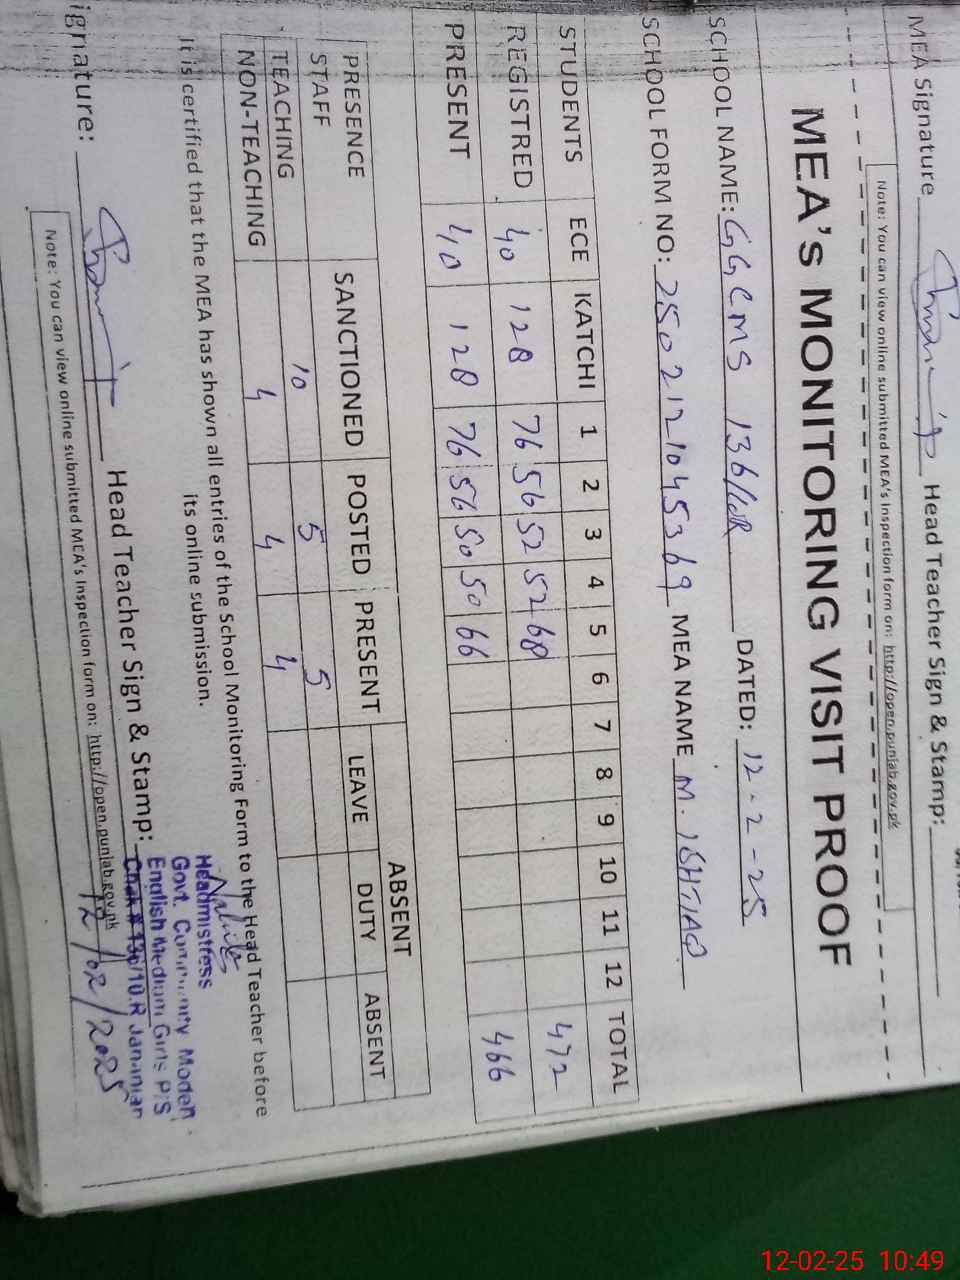 MEA Signature Head Teacher Sign & Stamp:
Note: You can view online submitted MEA's Inspection form on: http://open.punjab.gov.pk
MEA's MONITORING VISIT PROOF
SCHOOL NAME: GGCMS 136/10R DATED: 12-2-25
SCHOOL FORM NO: 2502121045369 MEA NAME M. ISHTIAQ
STUDENTS ECE KATCHI 1 2 3 4 5 6 7 8 9 10 11 12 TOTAL
REGISTRED 40 128 76 56 52 52 68 472
PRESENT 40 128 76 56 50 50 66 466
PRESENCE SANCTIONED POSTED PRESENT ABSENT
STAFF LEAVE DUTY ABSENT
TEACHING 10 5 5
NON-TEACHING 4 4 4
It is certified that the MEA has shown all entries of the School Monitoring Form to the Head Teacher before
its online submission.
Headmistress
Govt. Community Model
English Medium Girls P/S
Chak # 136/10.R Jahanian
ignature: Head Teacher Sign & Stamp:
12/02/2025
Note: You can view online submitted MEA's Inspection form on: http://open.punjab.gov.pk
12-02-25 10:49